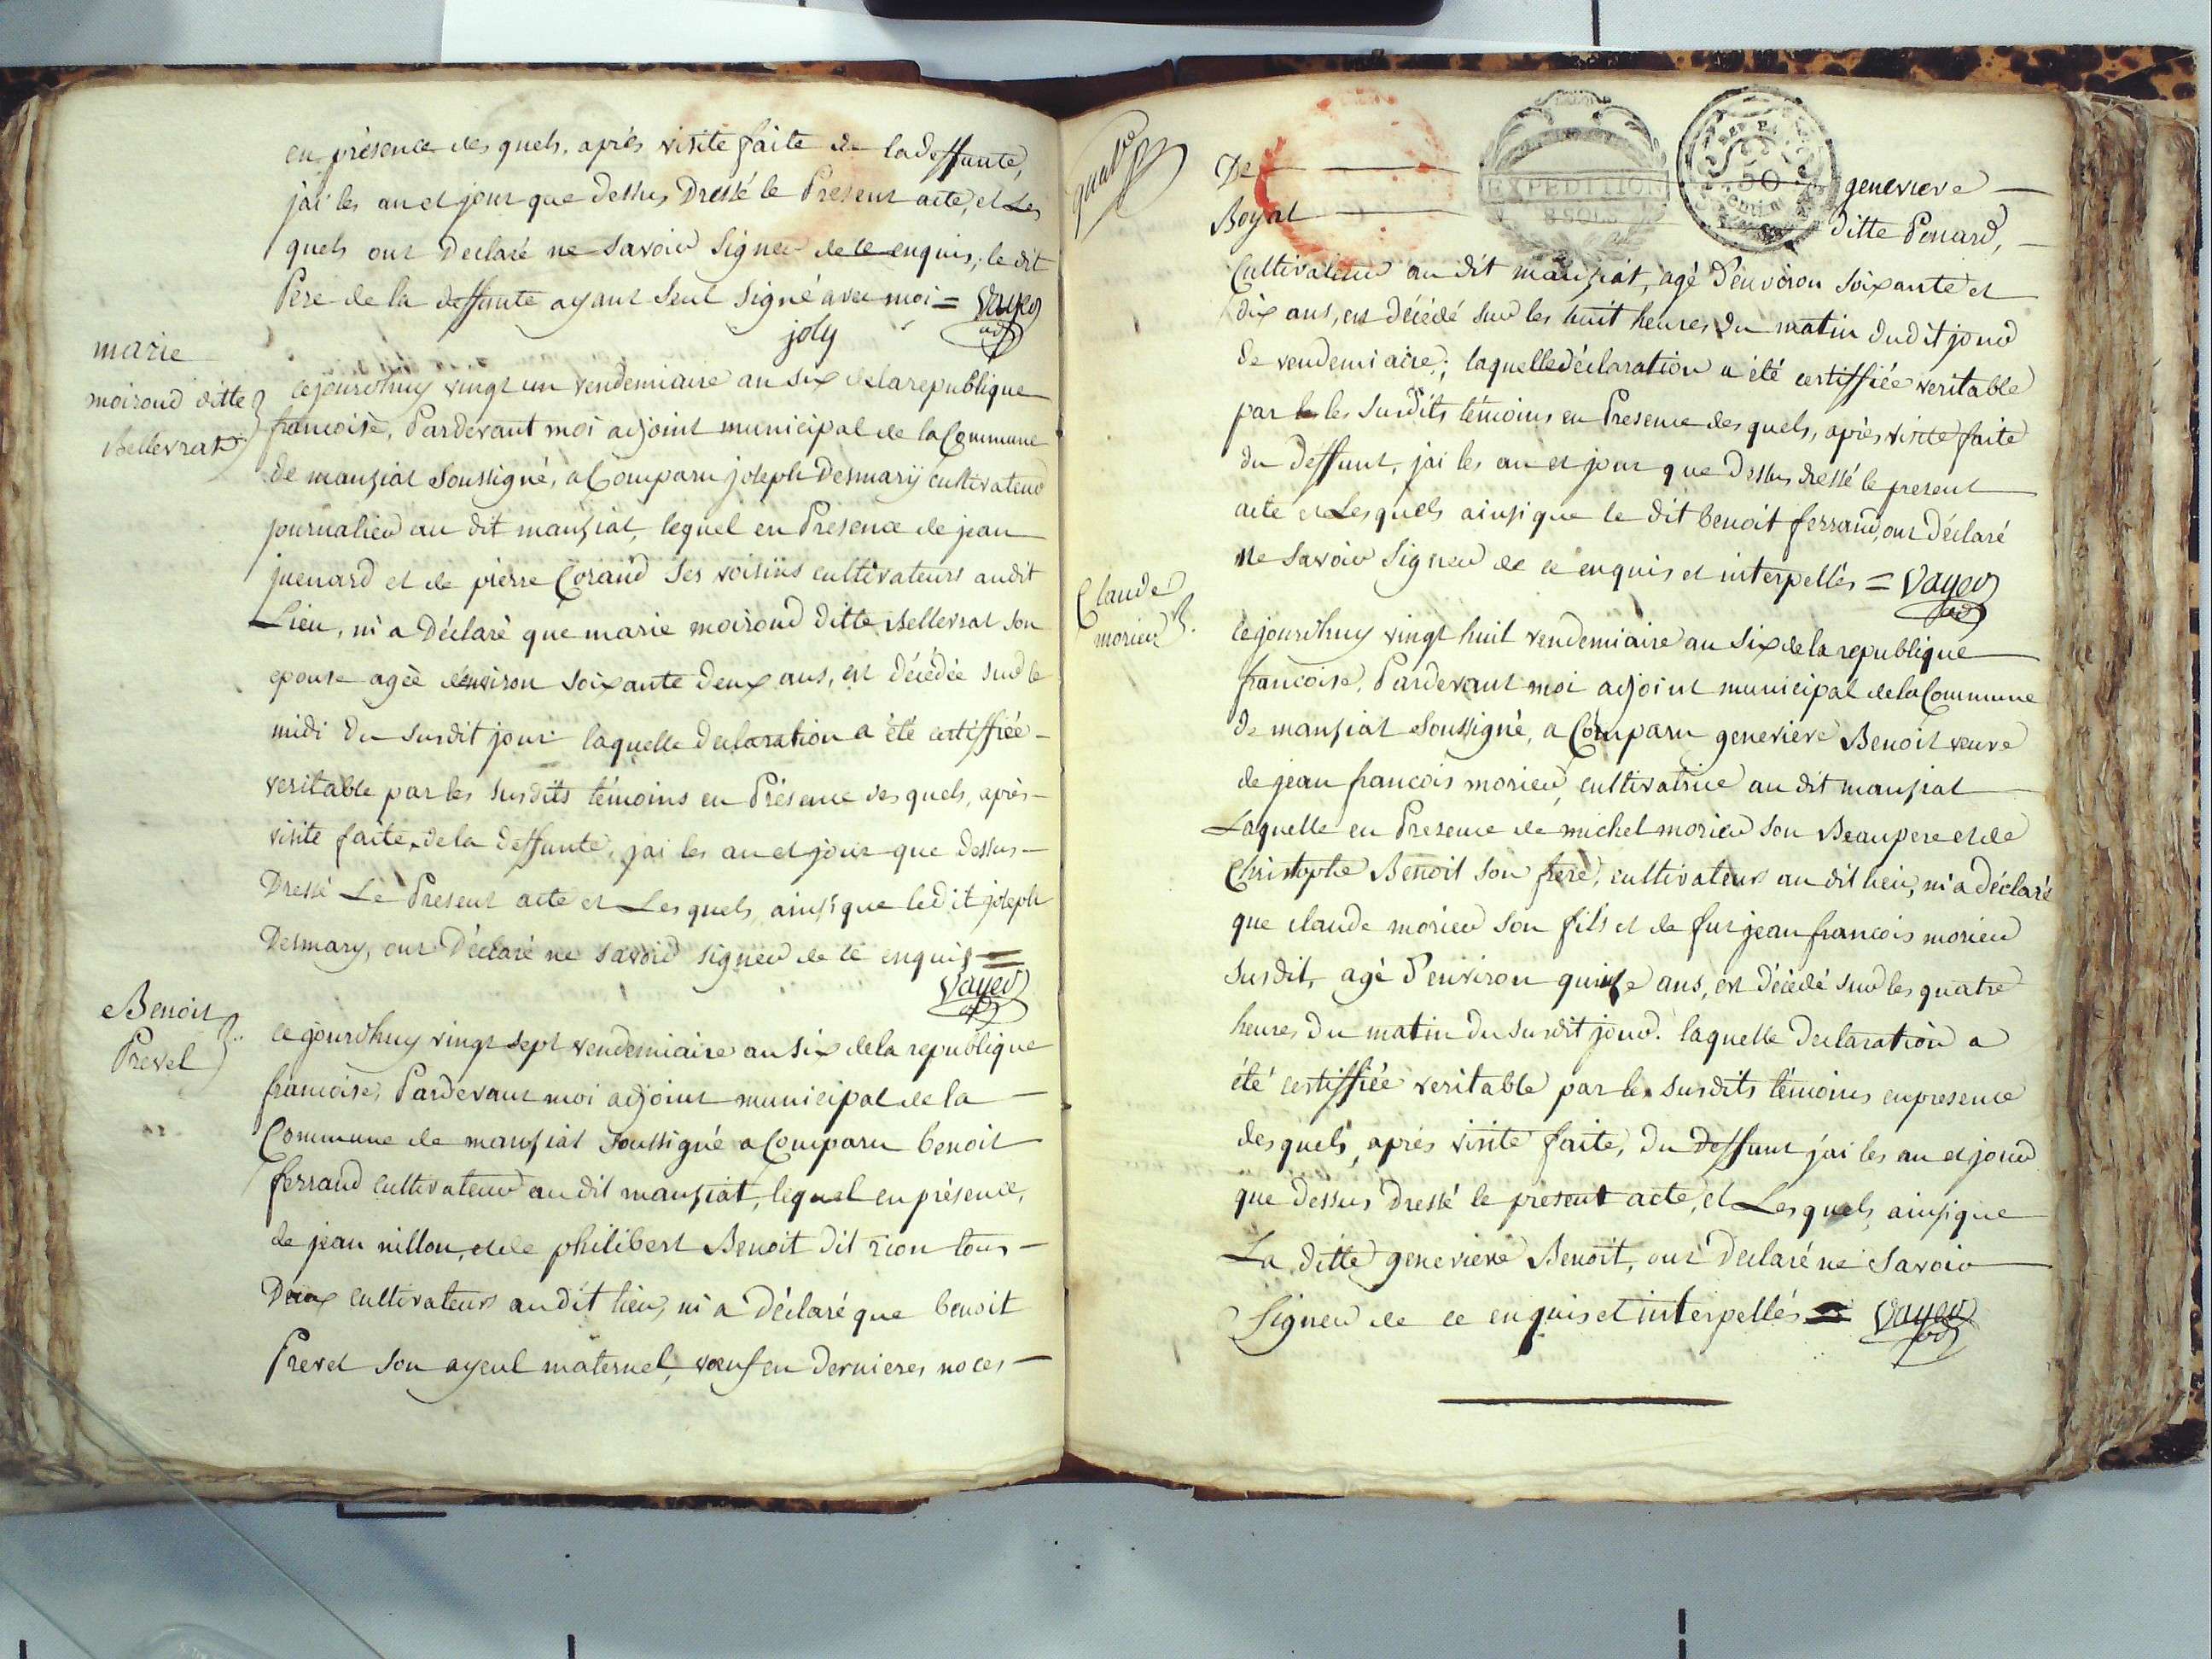 en présence des quels, après visite faite de la deffunte,
j'ai les an et jour que dessus Dressé le Present acte, et Les
quels ont Declaré ne savoir signer de ce enquis, le dit
Pere de la deffunte ayant seul signé avec moi = Vayer
joly adj
marie
moiroud ditte
Bellevrat
cejourd'huy vingt un vendemiaire an six de la republique
francoise, Pardevant moi adjoint municipal de la Commune
de manziat soussigné, a Comparu joseph Desmarÿ cultivateur
journalier au dit manziat, lequel en Presence de jean
juenard et de pierre Coraud ses voisins cultivateurs audit
Lieu, m'a Déclaré que marie moiroud ditte Bellevrat son
epouse agée denviron soixante deux ans, est décédée sur le
midi du susdit jour laquelle declaration a été certiffiée
veritable par les susdits témoins en Présence des quels, après
visite faite, de la deffunte, j'ai les an et jour que dessus
Dressé Le Present acte et Les quels, ainsi que ledit joseph
Desmary, ont Déclaré ne savoir signer de ce enquis =
Vayer
adj
Benoit
Prevel
cejourd'huy vingt sept vendemiaire an six de la republique
francoise, Pardevant moi adjoint municipal de la
Commune de manziat soussigné a Comparu benoit
ferrand cultivateur au dit manziat, lequel en présence,
de jean nillon, et de philibert Benoit dit rion tous
Deux cultivateurs au dit lieu, m'a déclaré que benoit
Prevel son ayeul maternel, vœuf en dernieres noces
De genevieve
Boyat ditte Penard,
Cultivateur au dit manziat, agé d'environ soixante et
dix ans, est décédé sur les huit heures du matin dudit jour
de vendemiaire; laquelle déclaration a été certiffiée veritable
par les les susdits témoins en Presence des quels, après visite faite
du deffunt, j'ai les an et jour que dessus dressé le present
acte et Lesquels ainsi que le dit benoit ferrand, ont déclaré
ne savoir signer de ce enquis et interpellés = Vayer
adj
Claude
morier
cejourd'huy vingt huit vendemiaire an six de la republique
francoise, Pardevant moi adjoint municipal de la Commune
de manziat soussigné, a Comparu genevieve Benoit veuve
de jean francois morier, cultivatrice au dit manziat
Laquelle en Presence de michel morier son Beaupere et de
Christophe Benoit son frere, cultivateurs au dit lieu, m'a déclaré
que claude morier son fils et de fut jean francois morier
susdit, agé d'environ quinze ans, est décédé sur les quatre
heures du matin du susdit jour. laquelle declaration a
été certiffiée veritable par les susdits témoins en presence
des quels, après visite faite, du deffunt j'ai les an et jour
que dessus dressé le present acte, et Les quels, ainsi que
La ditte genevieve Benoit, ont déclaré ne savoir
signer de ce enquis et interpellés = Vayer
adj
EXPEDITION
8 SOLS
REP FRA
50
centim